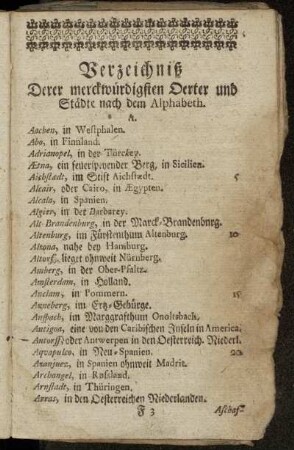 Verzeichniß
Derer merckwürdigsten Oerter und
Städte nach dem Alphabeth.
A.
Aachen, in Westphalen.
Abo, in Finnland.
Adrianopel, in der Türckey.
Ætna, ein feuerspeyender Berg, in Sicilien.
Aichstadt, im Stift Aichstedt. 5
Alcair, oder Cairo, in Ægypten.
Alcala, in Spanien.
Algier, in der Barbarey.
Alt-Brandenburg, in der Marck-Brandenburg.
Altenburg, im Fürstenthum Altenburg. 10
Altona, nahe bey Hamburg.
Altorf, lieget ohnweit Nürnberg.
Amberg, in der Ober-Pfaltz.
Amsterdam, in Holland.
Anclam, in Pommern. 15
Anneberg, im Ertz-Gebürge.
Anspach, im Marggrafthum Onoltzbach.
Antigoa, eine von den Caribischen Inseln in America.
Antorff oder Antwerpen in den Oesterreich. Niederl.
Aquapulco, in Neu-Spanien. 20
Aranjuez, in Spanien ohnweit Madrit.
Archangel, in Rußland.
Arnstadt, in Thüringen.
Arras, in den Oesterreichen Niederlanden.
F 3 Aschaf-